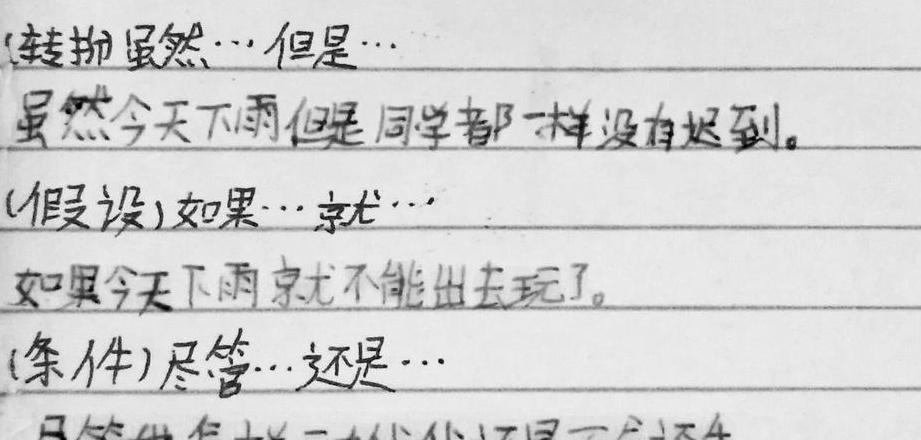 (转折)虽然…但是…
虽然今天下雨但是同学都一样没有迟到。
(假设)如果…就…
如果今天下雨就不能出去玩了。
(条件)尽管…还是…